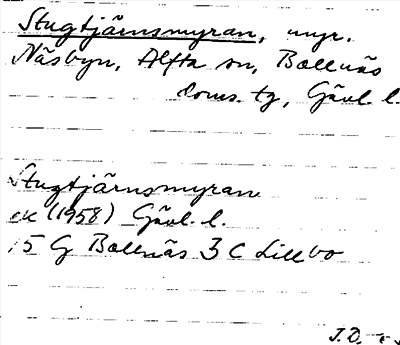 Stugtjärnsmyran, myr.
Näsbyn, Alfta sn, Bollnäs
doms. tg, Gävl. l.
Stugtjärnsmyran
ek (1958) Gävl. l.
15 G Bollnäs 3 C Lillbo
J.D.